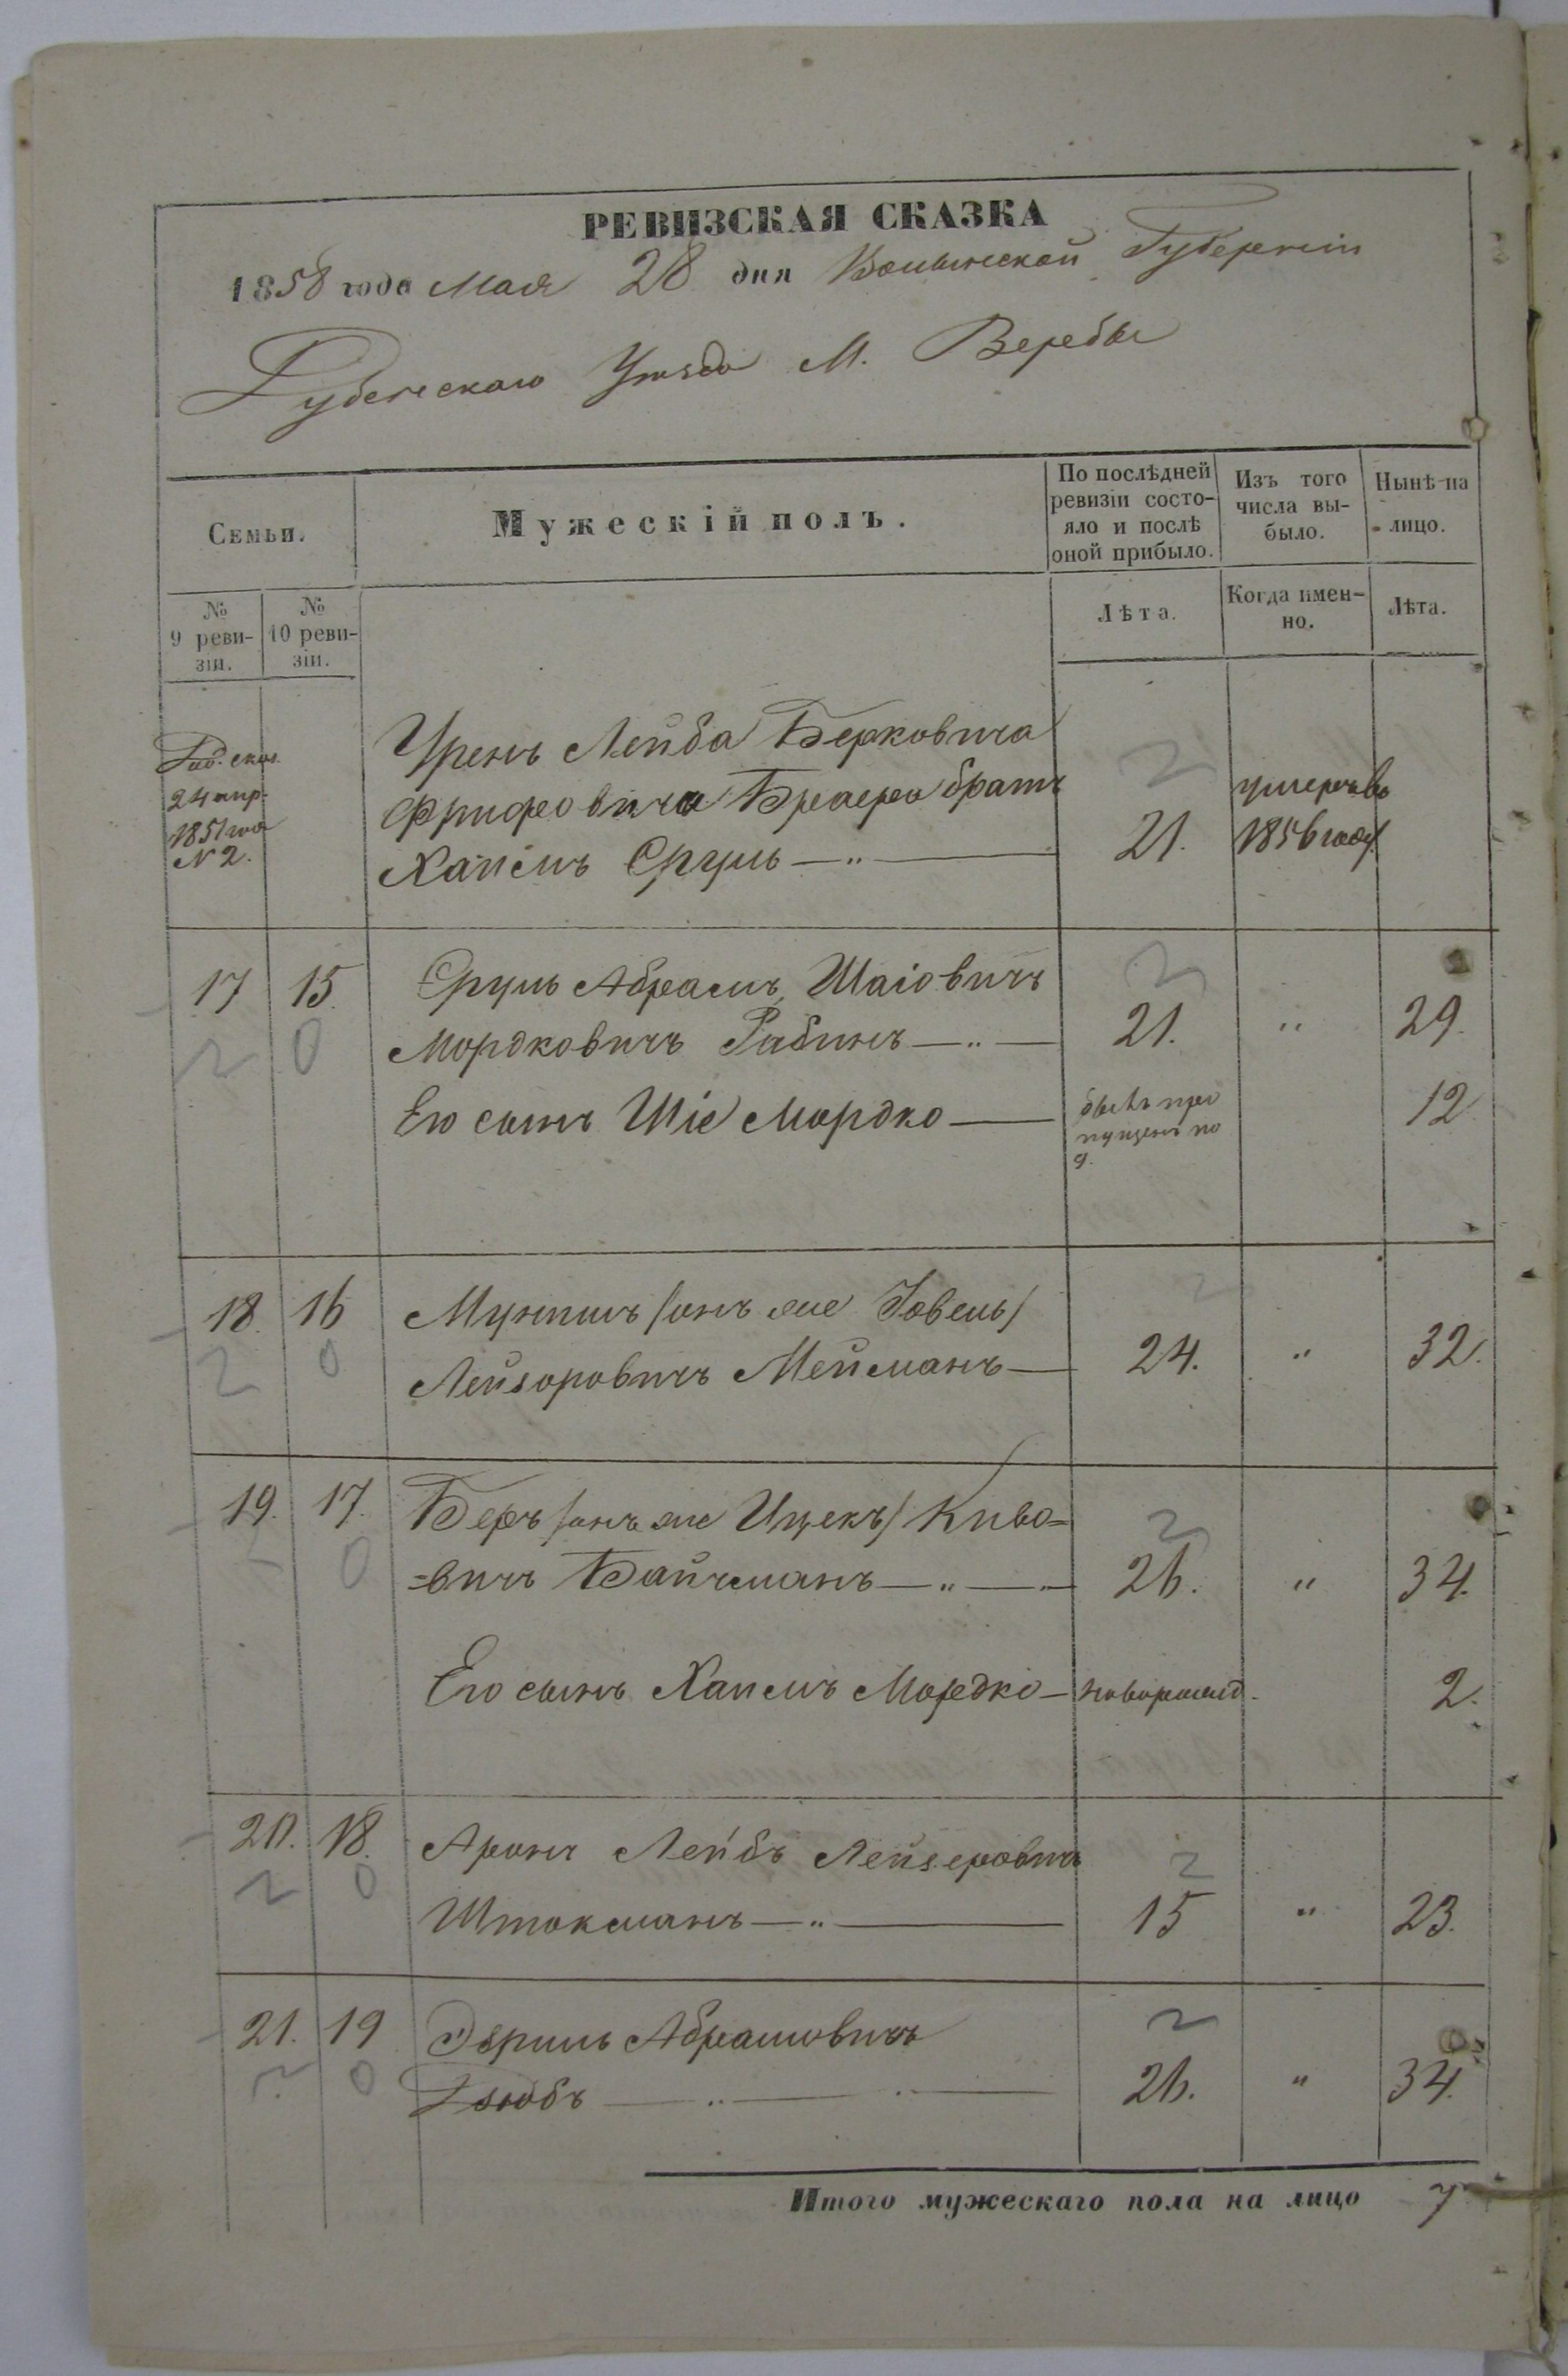 РЕВИЗСКАЯ СКАЗКА
1858 года Мая 28 дня Волынской Губерніи
Дубенскаго Уѣзда М. Вербы
Семьи.
Мужескій полъ.
По послѣдней ревизіи состо-
яло и послѣ
оной прибыло.
Изъ того
числа вы-
было.
Нынѣ на
лицо.
№
9 реви-
зіи.
№
10 реви-
зіи.
Лѣта.
Когда имен-
но.
Лѣта.
24 апр.
1851 года
№ 2.
Лейба Берковича
братъ
Хаимъ Сруль
21.
умеръ въ
1856 году
17 15. Сруль Абрамъ Шаіовичъ
Мордковичъ Рабинъ 21. " 29.
Его сынъ Шіе Мордко
былъ про
пущенъ по
9.
12
18. 16 /онъ же Іовель/
Лейзоровичъ Мейманъ 24. " 32.
19. 17. Беръ /онъ же Ицекъ/ Киво=
=вичъ Байчманъ 26. " 34.
Его сынъ Хаимъ Мордко новорожд. 2.
20. 18. Аронъ Лейбъ Лейзеровичъ
Штокманъ 15 " 23.
21. 19 Эврииль Абрамовичъ
26. " 34.
Итого мужескаго пола на лицо 7